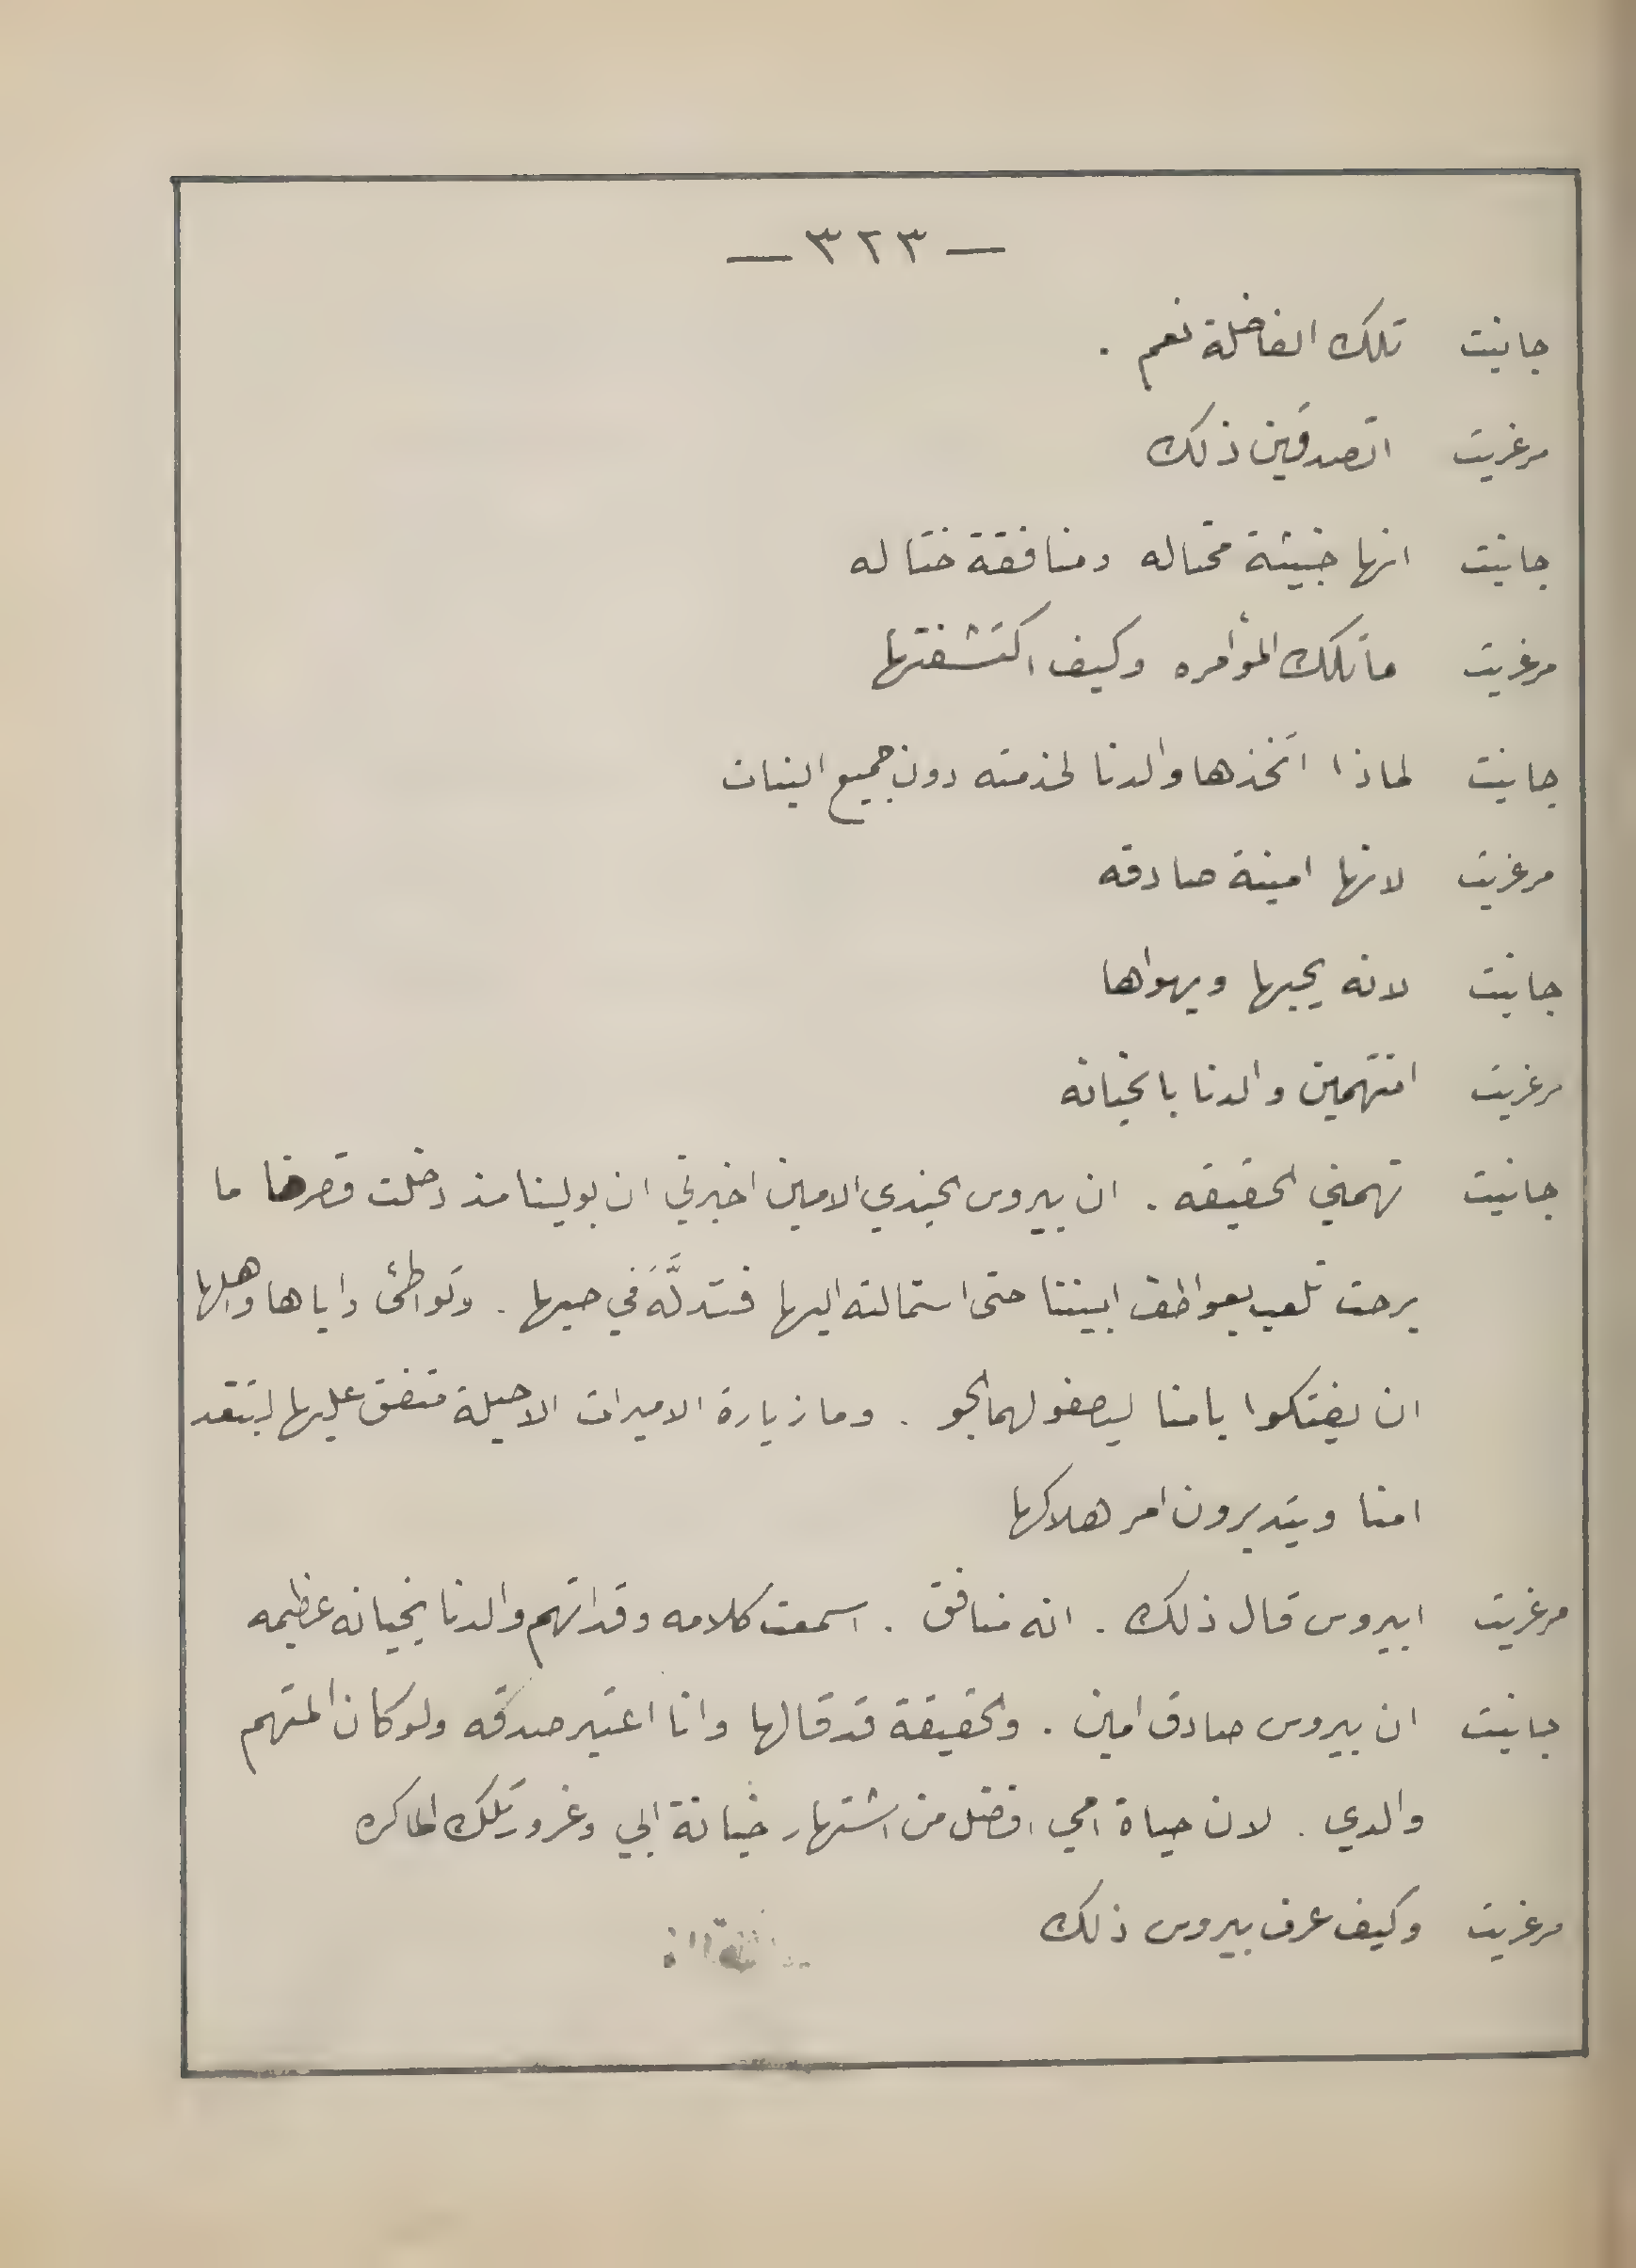 — ٣٢٣ —
جانيت تلك الفاضلة نعم .
مرغريت اتصدقين ذلك
جانيت انها خبيثة محتاله ومنافقة ختاله
مرغريت ما تلك المؤامره وكيف اكتشفتها
جانيت لماذا اتخذها والدنا لخدمته دون جميع البنات
مرغريت لانها امينة صادقه
جانيت لانه يحبها ويهواها
مرغريت اتتهمين والدنا بالخيانه
جانيت تهمني الحقيقه . ان بيروس الجندي الامين اخبرني ان بولينا مذ دخلت قصرنا ما
برحت تلعب بعواطف ابيتنا حتى استمالته اليها فتدلَّهَ في حبها . وتواطئ واياها واهلها
ان يفتكوا بامنا ليصفو لهما الجو . وما زيارة الاميرات الا حيلة متفق عليها لتبتعد
امنا ويتدبرون امر هلاكها
مرغريت ابيروس قال ذلك . انه منافق . اسمعت كلامه وقد اتهم والدنا بخيانه عظيمه
جانيت ان بيروس صادق امين . والحقيقة قد قالها وانا اعتبر صدقه ولو كان المتهم
والدي . لان حياة امي افضل من اشتهار خيانة ابي وغرور تلك الماكره
مرغريت وكيف عرف بيروس ذلك